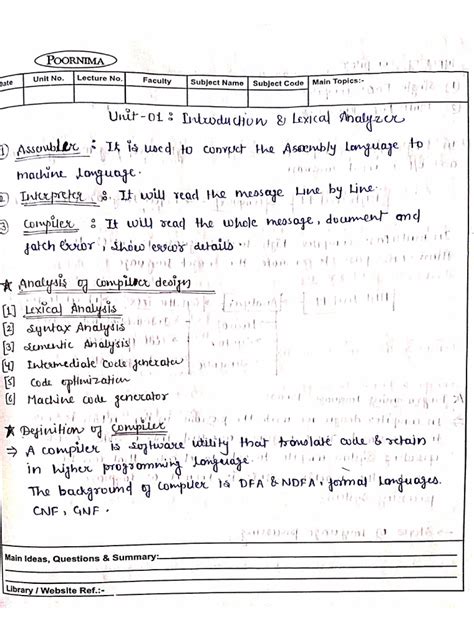 POORNIMA
Date Unit No. Lecture No. Faculty Subject Name Subject Code Main Topics:-
Unit-01 : Introduction & Lexical Analyzer
1) Assembler : It is used to convert the Assembly Language to
machine Language.
2 Interpreter : It will read the message Line by Line.
3 Compiler : It will read the whole message, document and
fatch error, show error details
★ Analysis of compiler design
[1] Lexical Analysis
[2] Syntax Analysis
[3] Sementic Analysis
[4] Intermediate Code generator
[5] Code optimization
[6] Machine code generator
★ Definition of compiler
⇒ A compiler is software utility that translate code & retain
in higher programming language.
The background of compiler is DFA & NDFA, formal languages.
CNF, GNF.
Main Ideas, Questions & Summary:
Library / Website Ref.:-